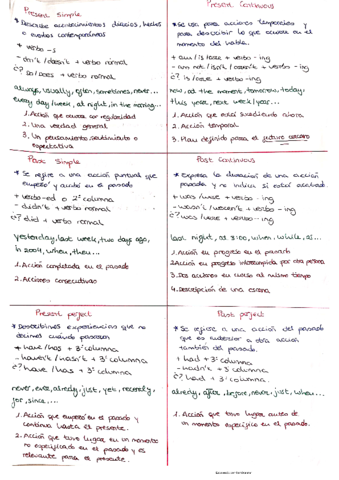 Present Simple
* Describe acontecimientos diarios, hechos
o eventos contemporáneos
+ verbo -s
- don't / doesn't + verbo normal
¿? Do/does + verbo normal
always, usually, often, sometimes, never...
every day/week, at night, in the morning...
1. Acción que ocurre con regularidad
2. Una verdad general
3. Un pensamiento, sentimiento o
expectativa
Present Continuous
* Se usa para acciones temporales y
para describir lo que ocurre en el
momento del habla.
+ am / is / are + verbo - ing
- am not / isn't / aren't + verbo - ing
¿? is / are + verbo - ing
now, at the moment, tomorrow, today,
this year, next week/year...
1. Acción que está sucediendo ahora
2. Acción temporal
3. Plan definido para el futuro cercano
Past Simple
* Se refiere a una acción puntual que
empezó y acabó en el pasado
+ verbo-ed o 2ª columna
- didn't + verbo normal
¿? did + verbo normal
yesterday, last week, two days ago,
in 2004, when, then...
1. Acción completada en el pasado
2. Acciones consecutivas
Past Continuous
* Expresa la duración de una acción
pasada y no indica si está acabada
+ was / were + verbo - ing
- wasn't / weren't + verbo - ing
¿? was / were + verbo - ing
last night, at 3:00, when, while, as...
1. Acción en progreso en el pasado
2. Acción en progreso interrumpida por otra pasada
3. Dos acciones en curso al mismo tiempo
4. Descripción de una escena
Present perfect
* Describimos experiencias que no
decimos cuando pasaron
+ have / has + 3ª columna
- haven't / hasn't + 3ª columna
¿? have / has + 3ª columna
never, ever, already, just, yet, recently,
for, since, ...
1. Acción que empezó en el pasado y
continua hasta el presente.
2. Acción que tuvo lugar en un momento
no especificado en el pasado y es
relevante para el presente.
Past perfect
* Se refiere a una acción del pasado
que es anterior a otra acción
también del pasado.
+ had + 3ª columna
- hadn't + 3ª columna
¿? had + 3ª columna.
already, after, before, never, just, when...
1. Acción que tuvo lugar antes de
un momento específico en el pasado.